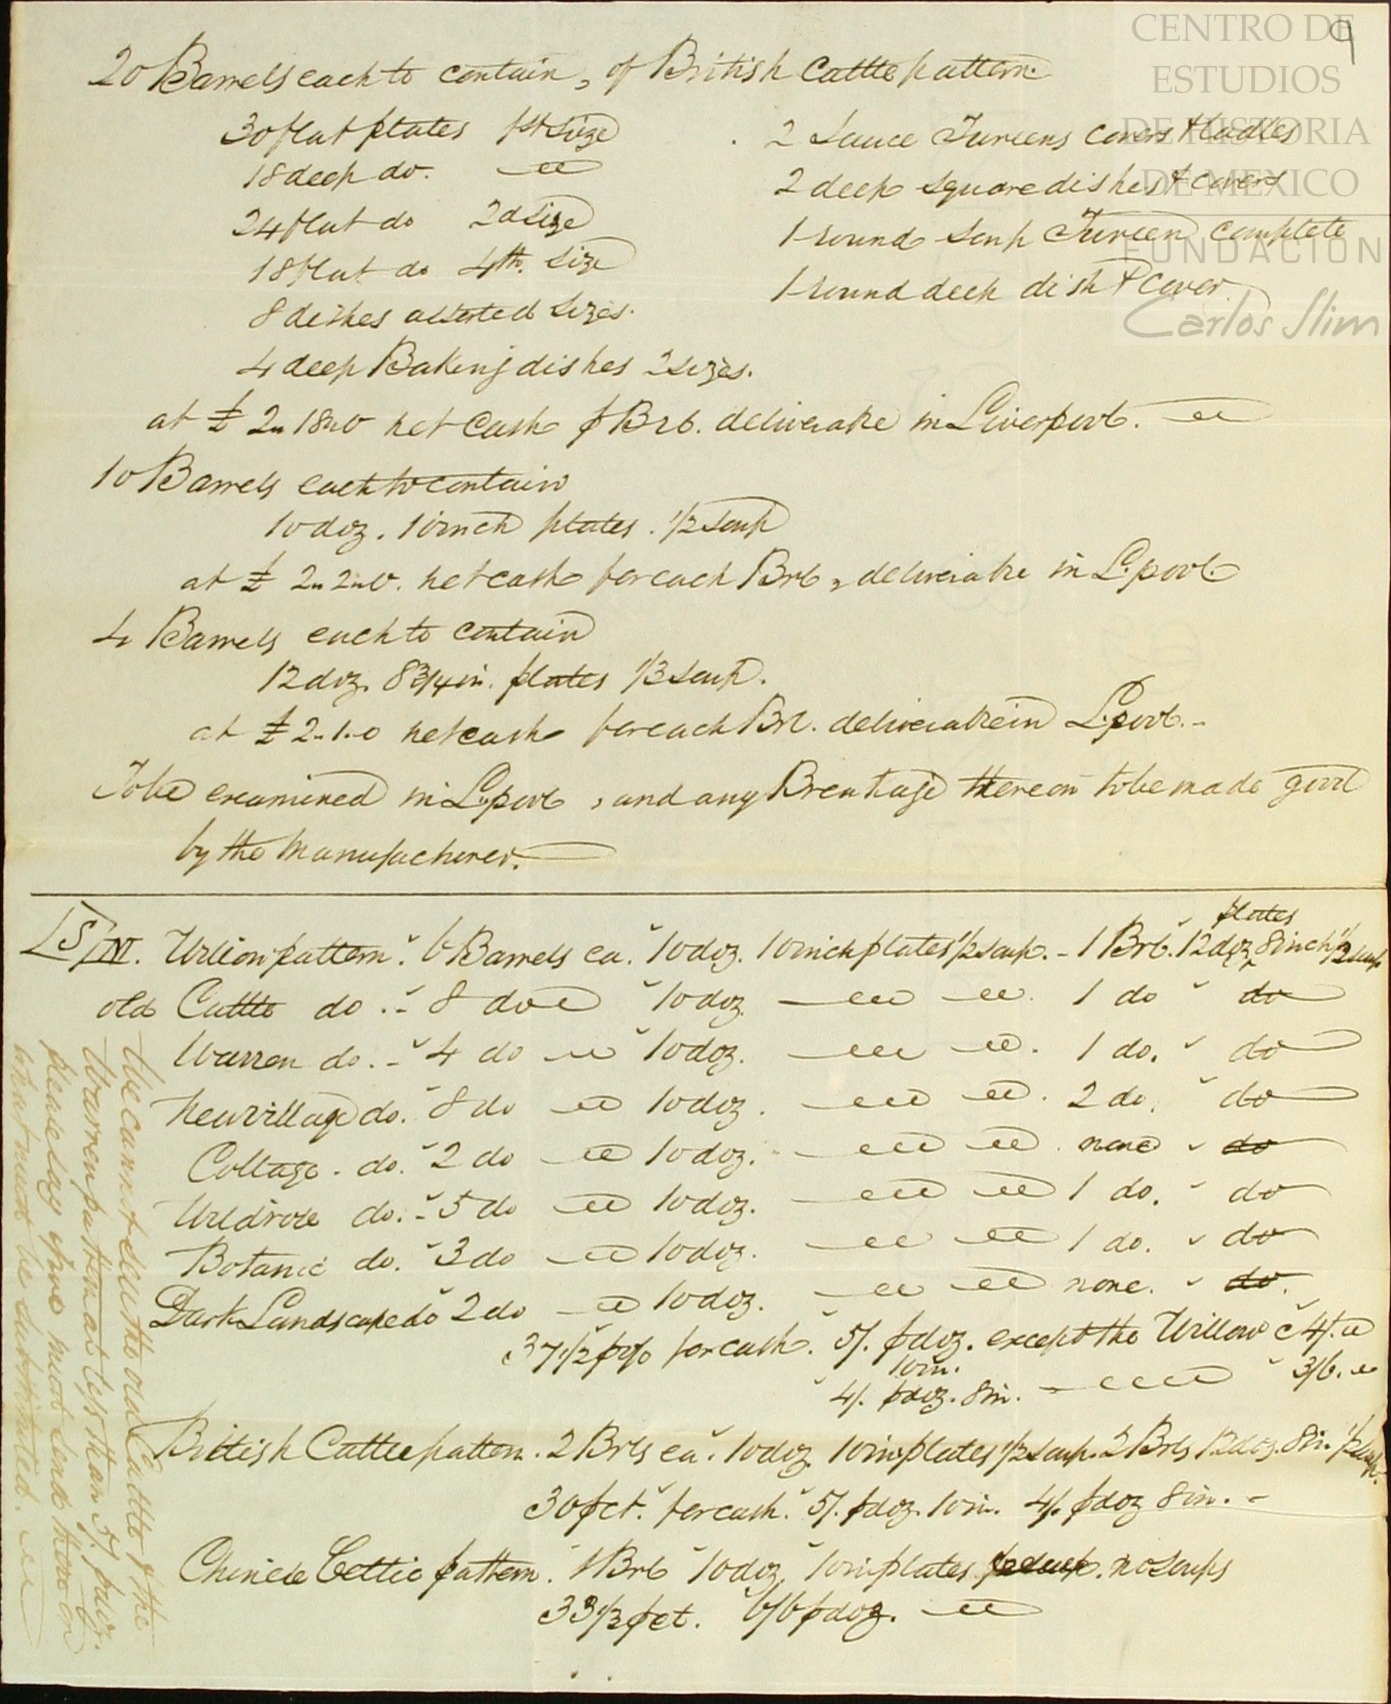 CENTRO DE
ESTUDIOS
DE HISTORIA
DE MEXICO
FUNDACION
Carlos Slim
9
20 Barrels each to contain, of British Cattle pattern.
30 flat plates 1st size
18 deep do. "
24 flat do 2d size
18 flat do 4th. size
8 dishes assorted sizes.
4 deep Baking dishes 2 sizes.
2 Sauce Tureens covers & ladles
2 deep square dishes & covers
1 round soup Tureen complete
1 round deep dish & cover.
at £ 2"18"0 net Cash p Brl. deliverable in Liverpool.
10 Barrels each to contain
10 doz. 10 inch plates. 1/2 soup
at £ 2"2"0. net cash for each Brl, deliverable in L.pool.
4 Barrels each to contain
12 doz. 8 3/4 in. plates 1/3 soup.
at £ 2-1-0 net cash for each Brl. deliverable in L.pool.-
To be examined in L.pool, and any Breakage thereon to be made good
by the Manufacturer.
[S] IN. Union pattern. 6 Barrels ea. 10 doz. 10 inch plates 1/2 soup. - 1 Brl. 12 doz plates 8 inch 1/2 soup
old Cattle do. - 8 do " 10 doz. " " 1 do " do
Warren do. - 4 do " 10 doz. " " 1 do. " do
New Village do. 8 do " 10 doz. " " 2 do. " do
Cottage. do. 2 do " 10 doz. " " none " do
Wildrose do. - 5 do " 10 doz. " " 1 do. " do
Botanic do. 3 do " 10 doz. " " 1 do. " do
Dark Landscape do 2 do " 10 doz. " " none. " do.
37 1/2 p% for cash. 5/. p doz. 10 in. except the Willow 4/. "
4/. p doz. 8 in. - " 3/6. "
British Cattle pattern. 2 Brls ea. 10 doz 10 in plates 1/2 soup. 2 Brls 12 doz. 8 in. 1/2 soup.
30 p ct. for cash. 5/. p doz. 10 in. 4/. p doz 8 in. -
Chinese Celtic pattern. 1 Brl 10 doz. 10 in plates no soups
33 1/3 p ct. 6/6 p doz. "
We cannot send the old Cattle & the
Warren pattern at less than 5/. p doz.
please say if we must send them or
what must be substituted.